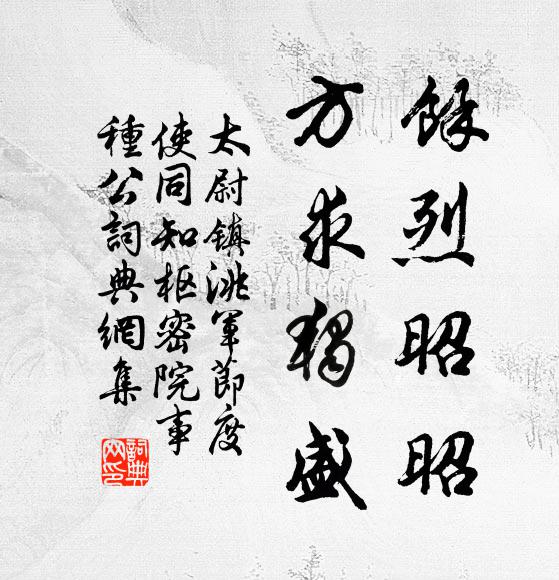 餘烈昭昭
方求獨盛
太尉鎮洮軍節度
使同知枢密院事
種公詞典網集
詞典
网印